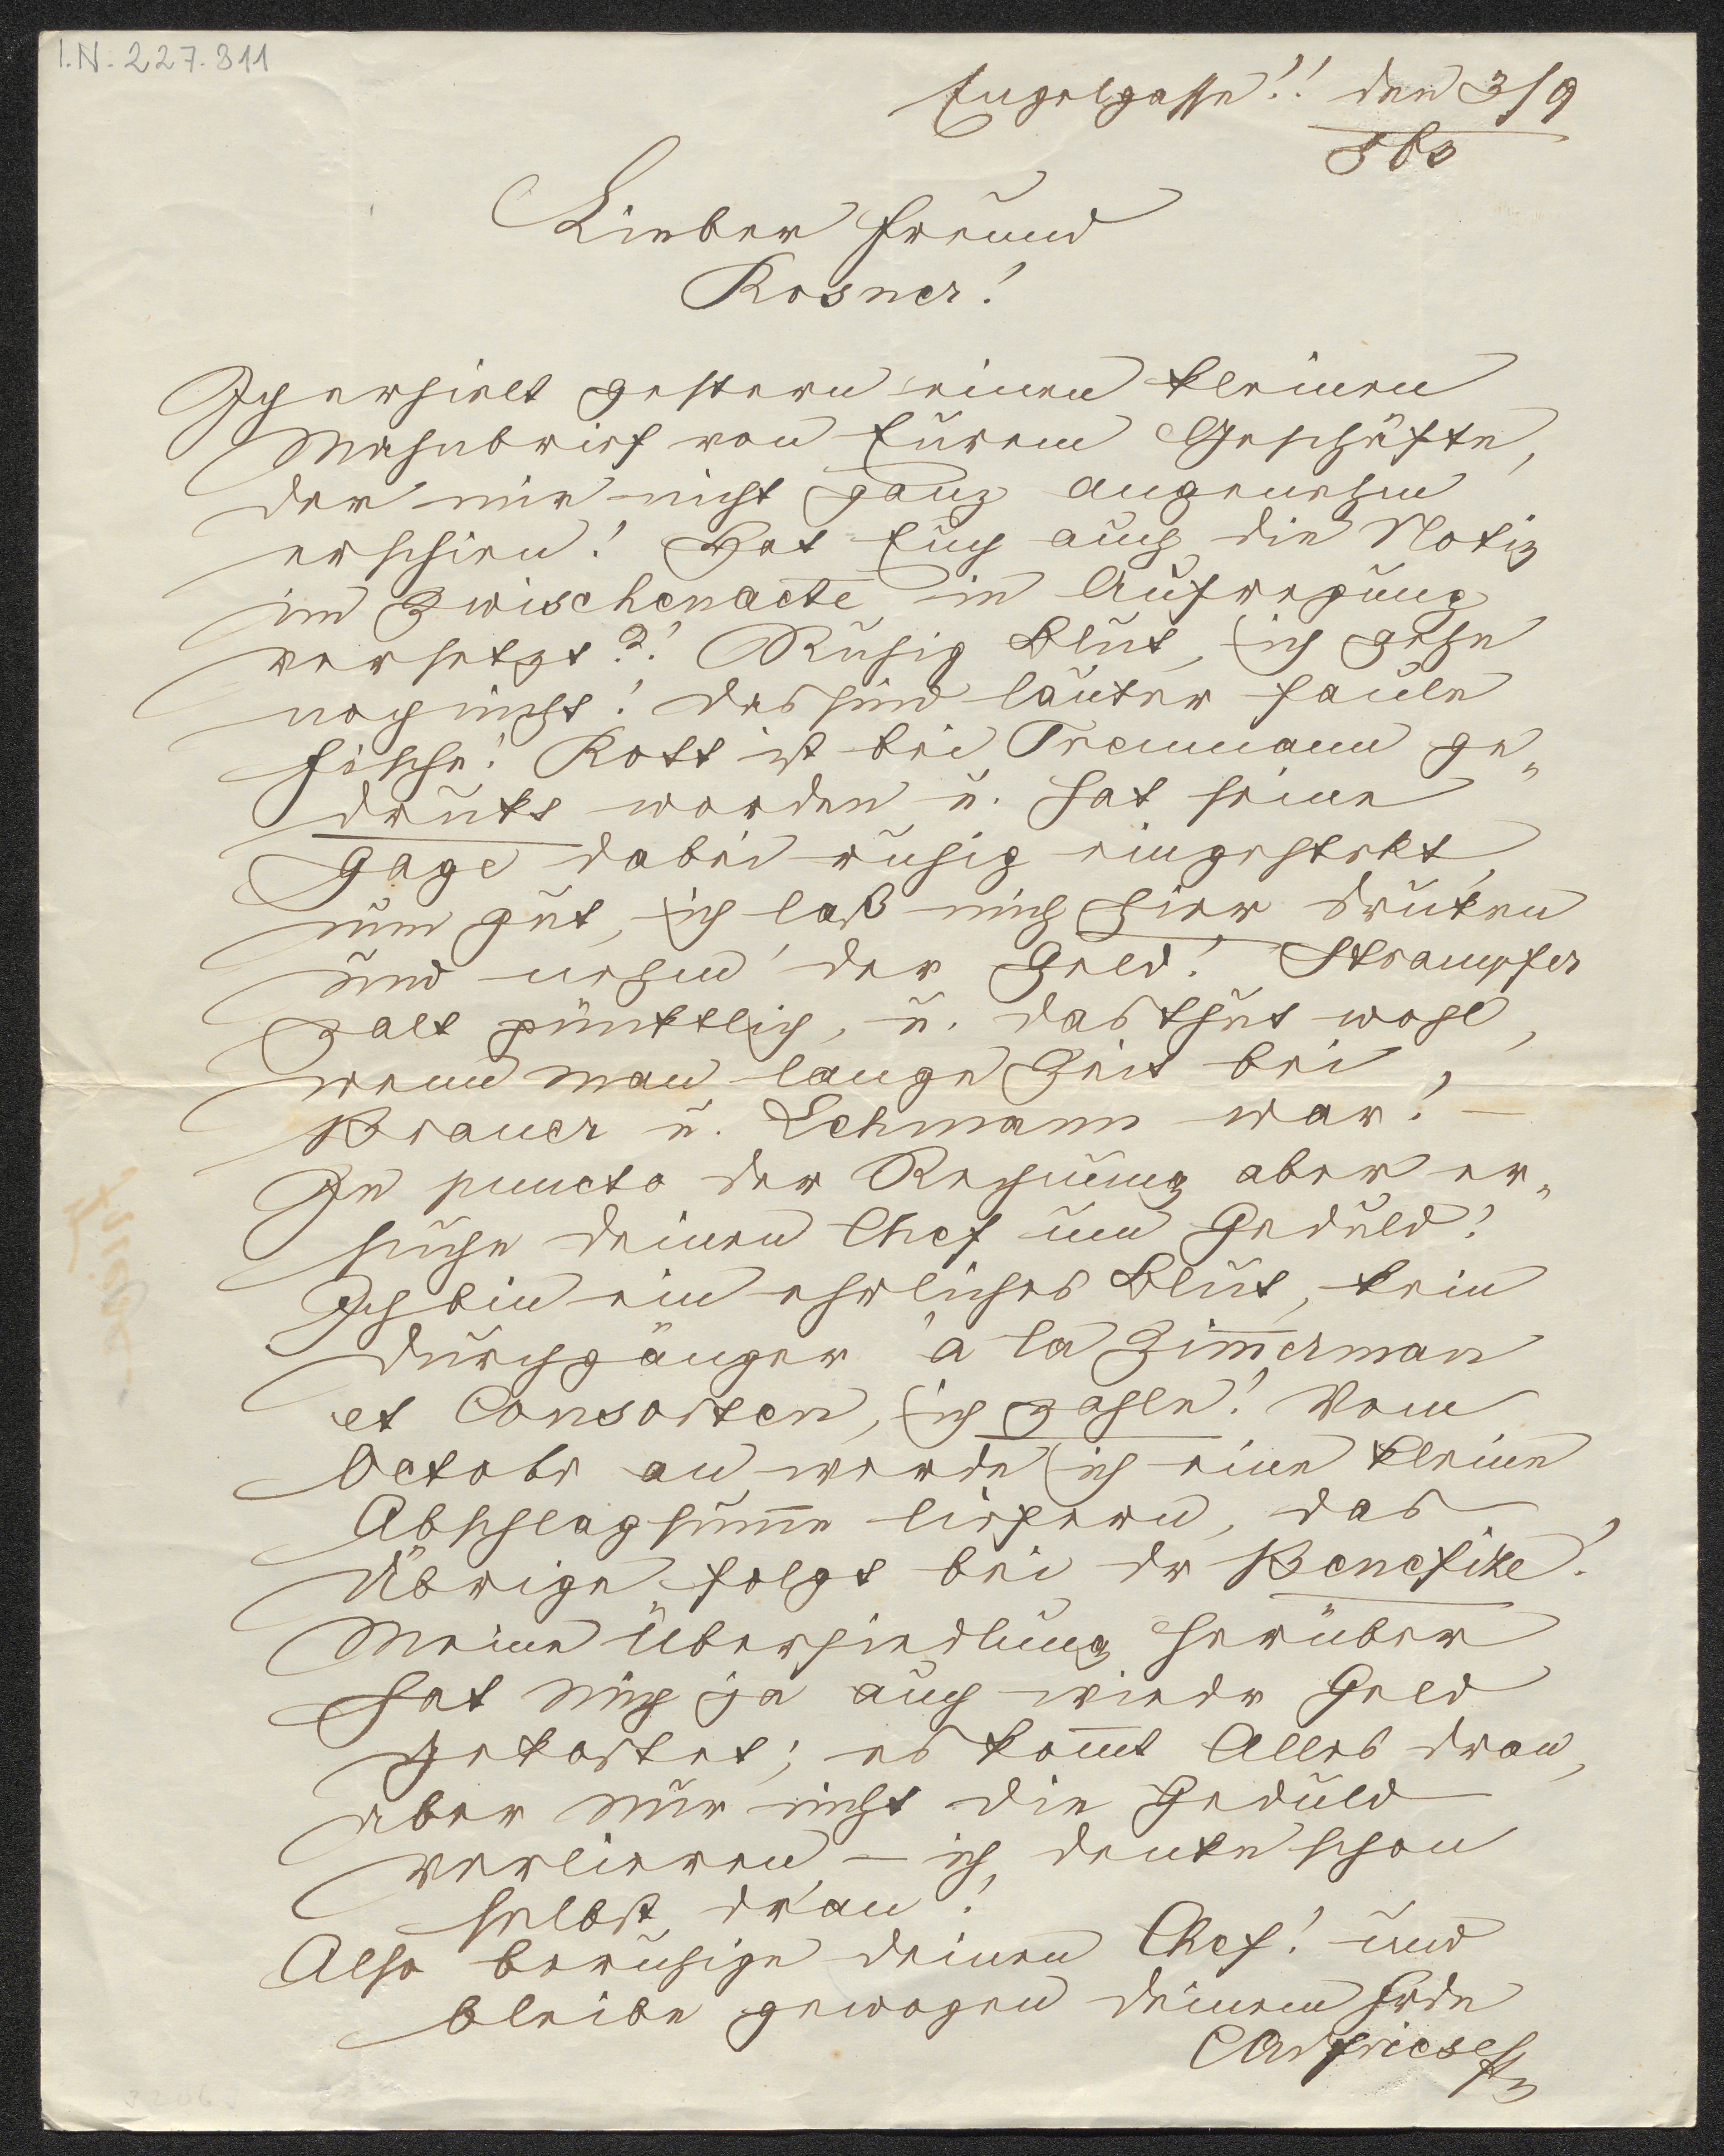 I.N. 227.311
Engelgasse!! den 3/9
863
Lieber Freund
Rosner!
Ich erhielt gestern einen kleinen
Mahnbrief von Eurem Geschäfte,
der mir nicht ganz angenehm
erschien! Hat Euch auch die Notiz
im Zwischenacte in Aufregung
versetzt?! Ruhig Blut, ich gehe
noch nicht! das sind lauter faule
Fische! Rott ist bei Treumann ge„
drukt worden u. hat seine
Gage dabei ruhig eingestekt,
nun gut, ich laß mich hier druken
und nehm' der Geld! Strampfer
zalt pünktlich, u. das thut wohl,
wenn man lange Zeit bei
Brauer u. Lehmann war! –
In puncto der Rechnung aber er„
suche deinen Chef um Geduld!
Ich bin ein ehrliches Blut, kein
Durchgänger à la Zim̅erman
et Consorten, ich zahle! Vom
Octobr an werde ich eine kleine
Abschlagsum̅e liefern, das
Übrige folgt bei dr Benefize!
Meine Übersiedlung herüber
hat mich ja auch wiedr Geld
gekostet; es kom̅t Alles dran,
aber nur nicht die Geduld
verlieren – ich denke schon
selbst dran!
Also beruhige deinen Chef! und
bleibe gewogen deinem Frde
CAFriese